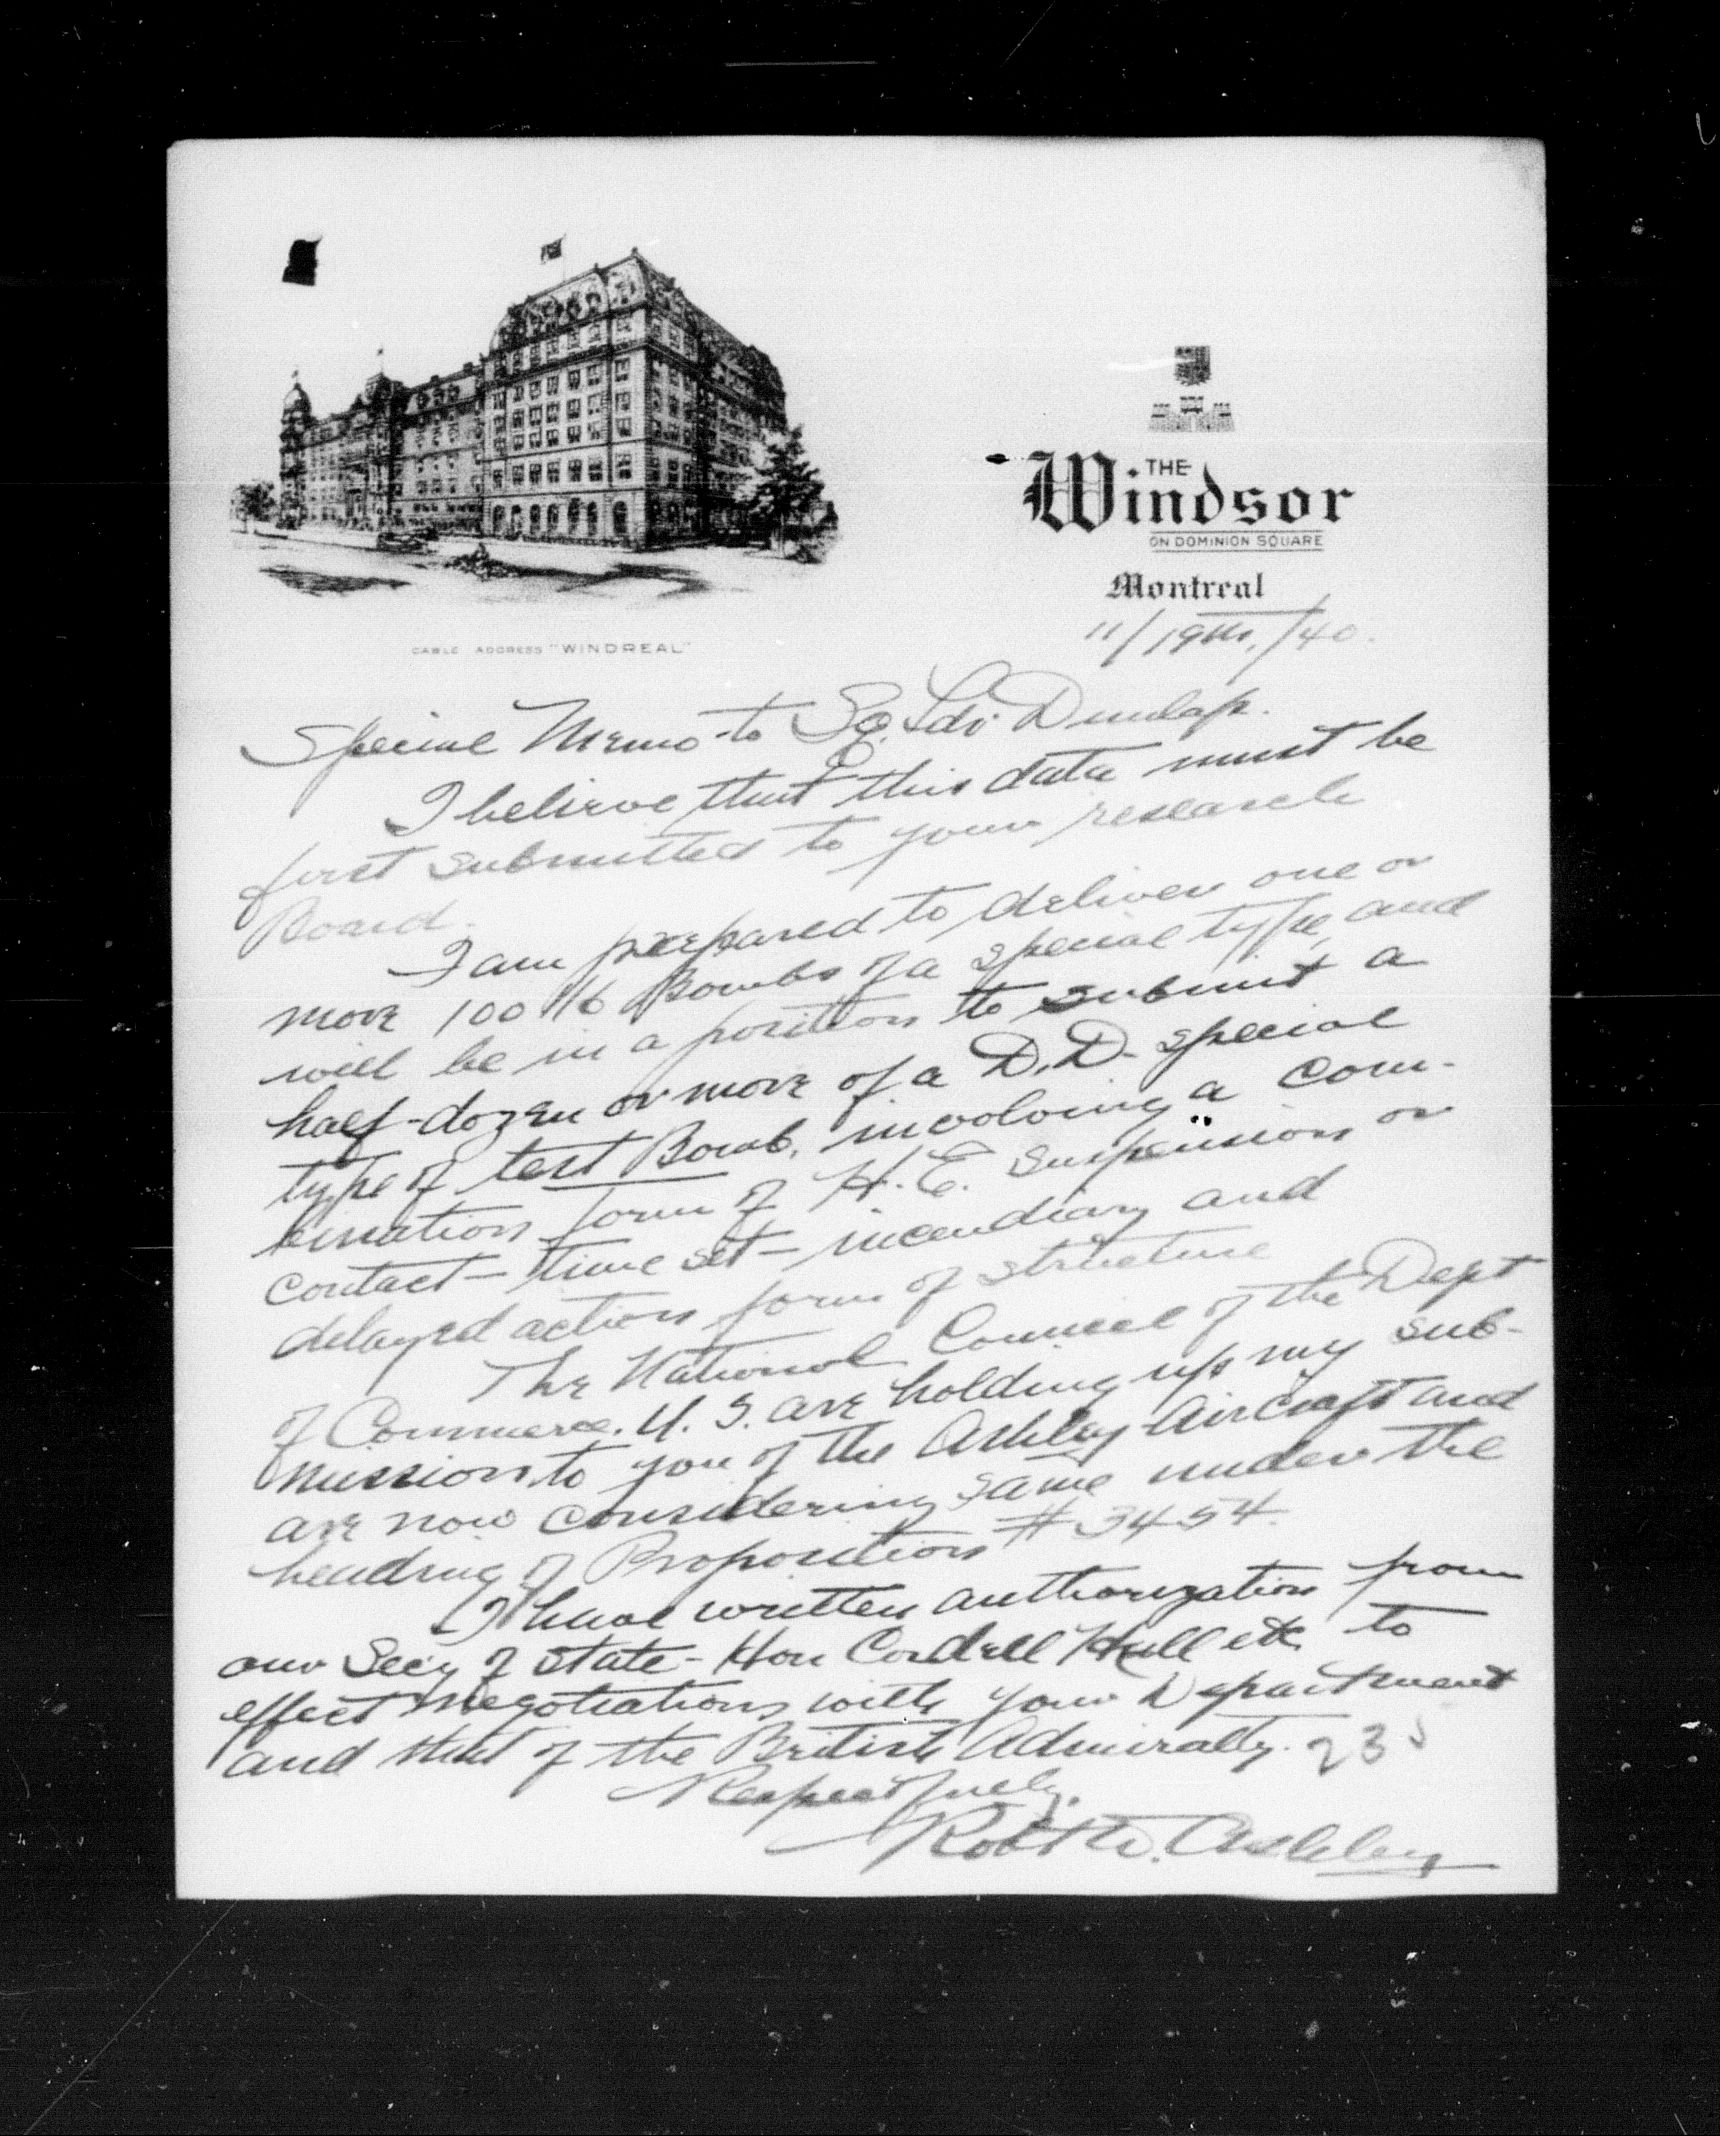 THE
Windsor
ON DOMINION SQUARE
Montreal
11/19th,/40.
CABLE ADDRESS "WINDREAL"
Special Memo to Sq. Ldr Dunlap.
I believe that this data must be
first submitted to your research
Board.
I am prepared to deliver one or
more 100 lb Bombs of a special type, and
will be in a position to submit a
half-dozen or more of a D.D. special
type of test Bomb, involving a com-
bination form of H.E. suspension or
contact - time set - incendiary and
delayed action form of structure
The National Council of the Dept
of Commerce. U.S. are holding up my sub-
mission to you of the Ashley Aircraft and
are now considering same under the
heading of Proposition # 3454.
I have written authorization from
our Secy of State - Hon Cordell Hull etc to
effect negotiations with your Department
and that of the British Admiralty. 235
Respectfully.
Robt W. Ashley